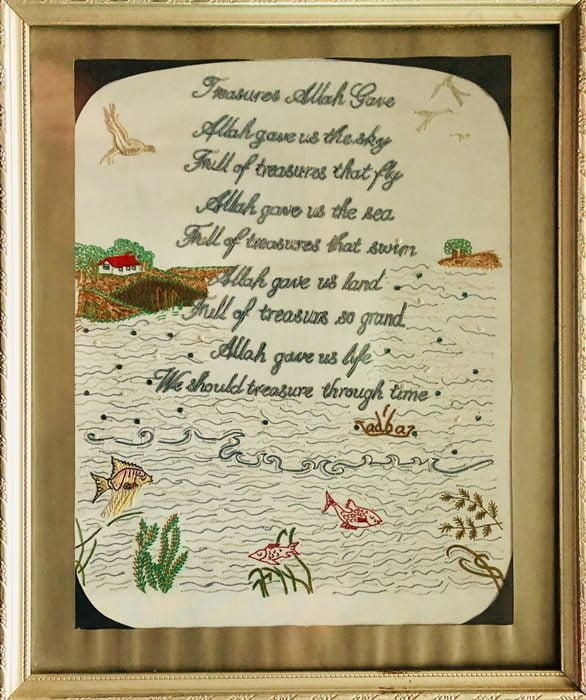 Treasures Allah Gave
Allah gave us the sky
Full of treasures that fly
Allah gave us the sea
Full of treasures that swim
Allah gave us land
Full of treasurs so grand
Allah gave us life
We should treasure through time